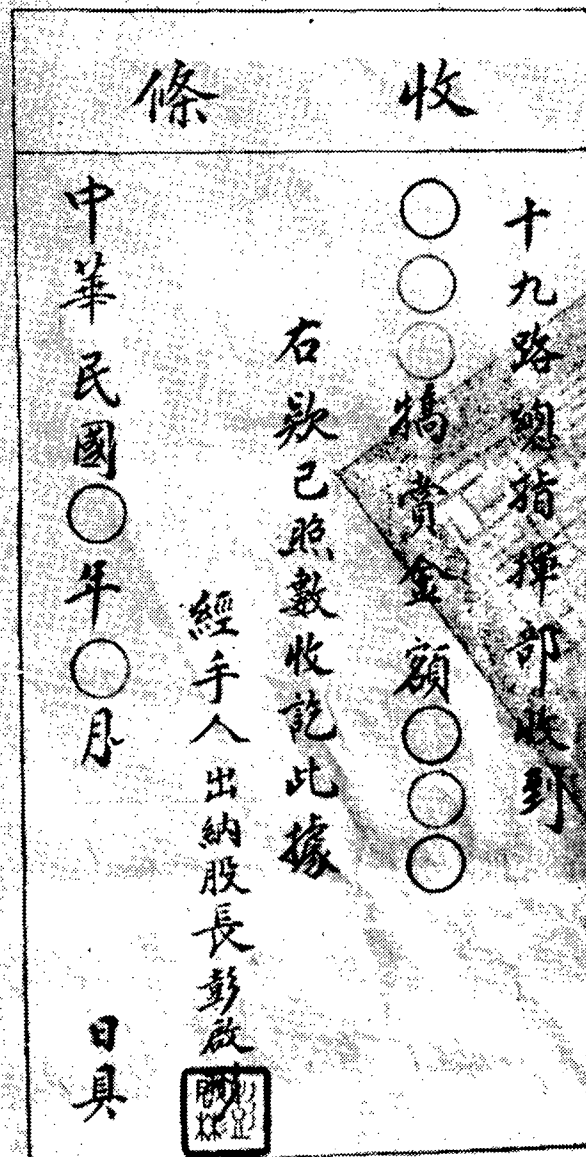 收條
十九路總指揮部收到
○○○犒賞金額○○○
右款已照數收訖此據
經手人出納股長彭啟
中華民國○年○月 日具